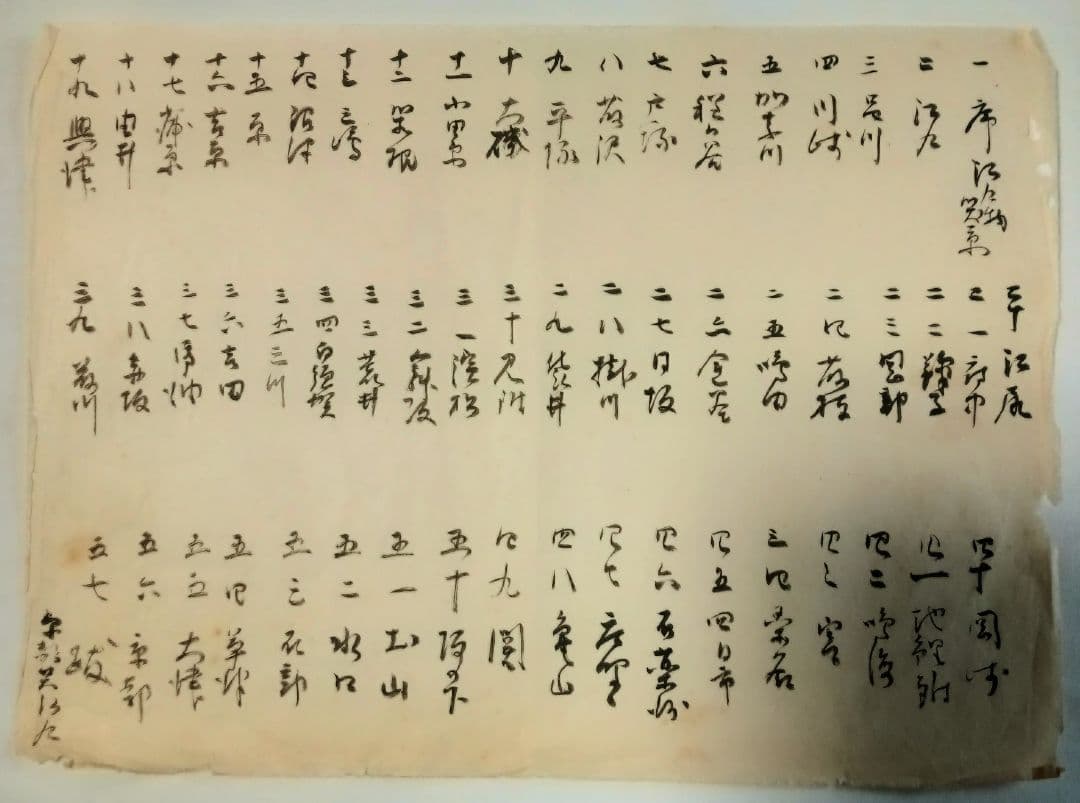 一 席
二 江戸
三 品川
四 川崎
五 加奈川
六 程ヶ谷
七 戸塚
八 藤沢
九 平塚
十 大磯
十一 小田原
十二 箱根
十三 三嶋
十四 沼津
十五 原
十六 吉原
十七 蒲原
十八 由井
十九 興津
二十 江尻
二一 府中
二二 鞠子
二三 岡部
二四 藤枝
二五 嶋田
二六 金谷
二七 日坂
二八 掛川
二九 袋井
三十 見附
三一 濱松
三二 舞坂
三三 荒井
三四 白須賀
三五 二川
三六 吉田
三七 御油
三八 赤坂
三九 藤川
四十 岡崎
四一 池鯉鮒
四二 鳴海
四三 宮
三四 桑名
四五 四日市
四六 石薬師
四七 庄野
四八 亀山
四九 關
五十 阪の下
五一 土山
五二 水口
五三 石部
五四 草津
五五 大津
五六 京都
五七 跋